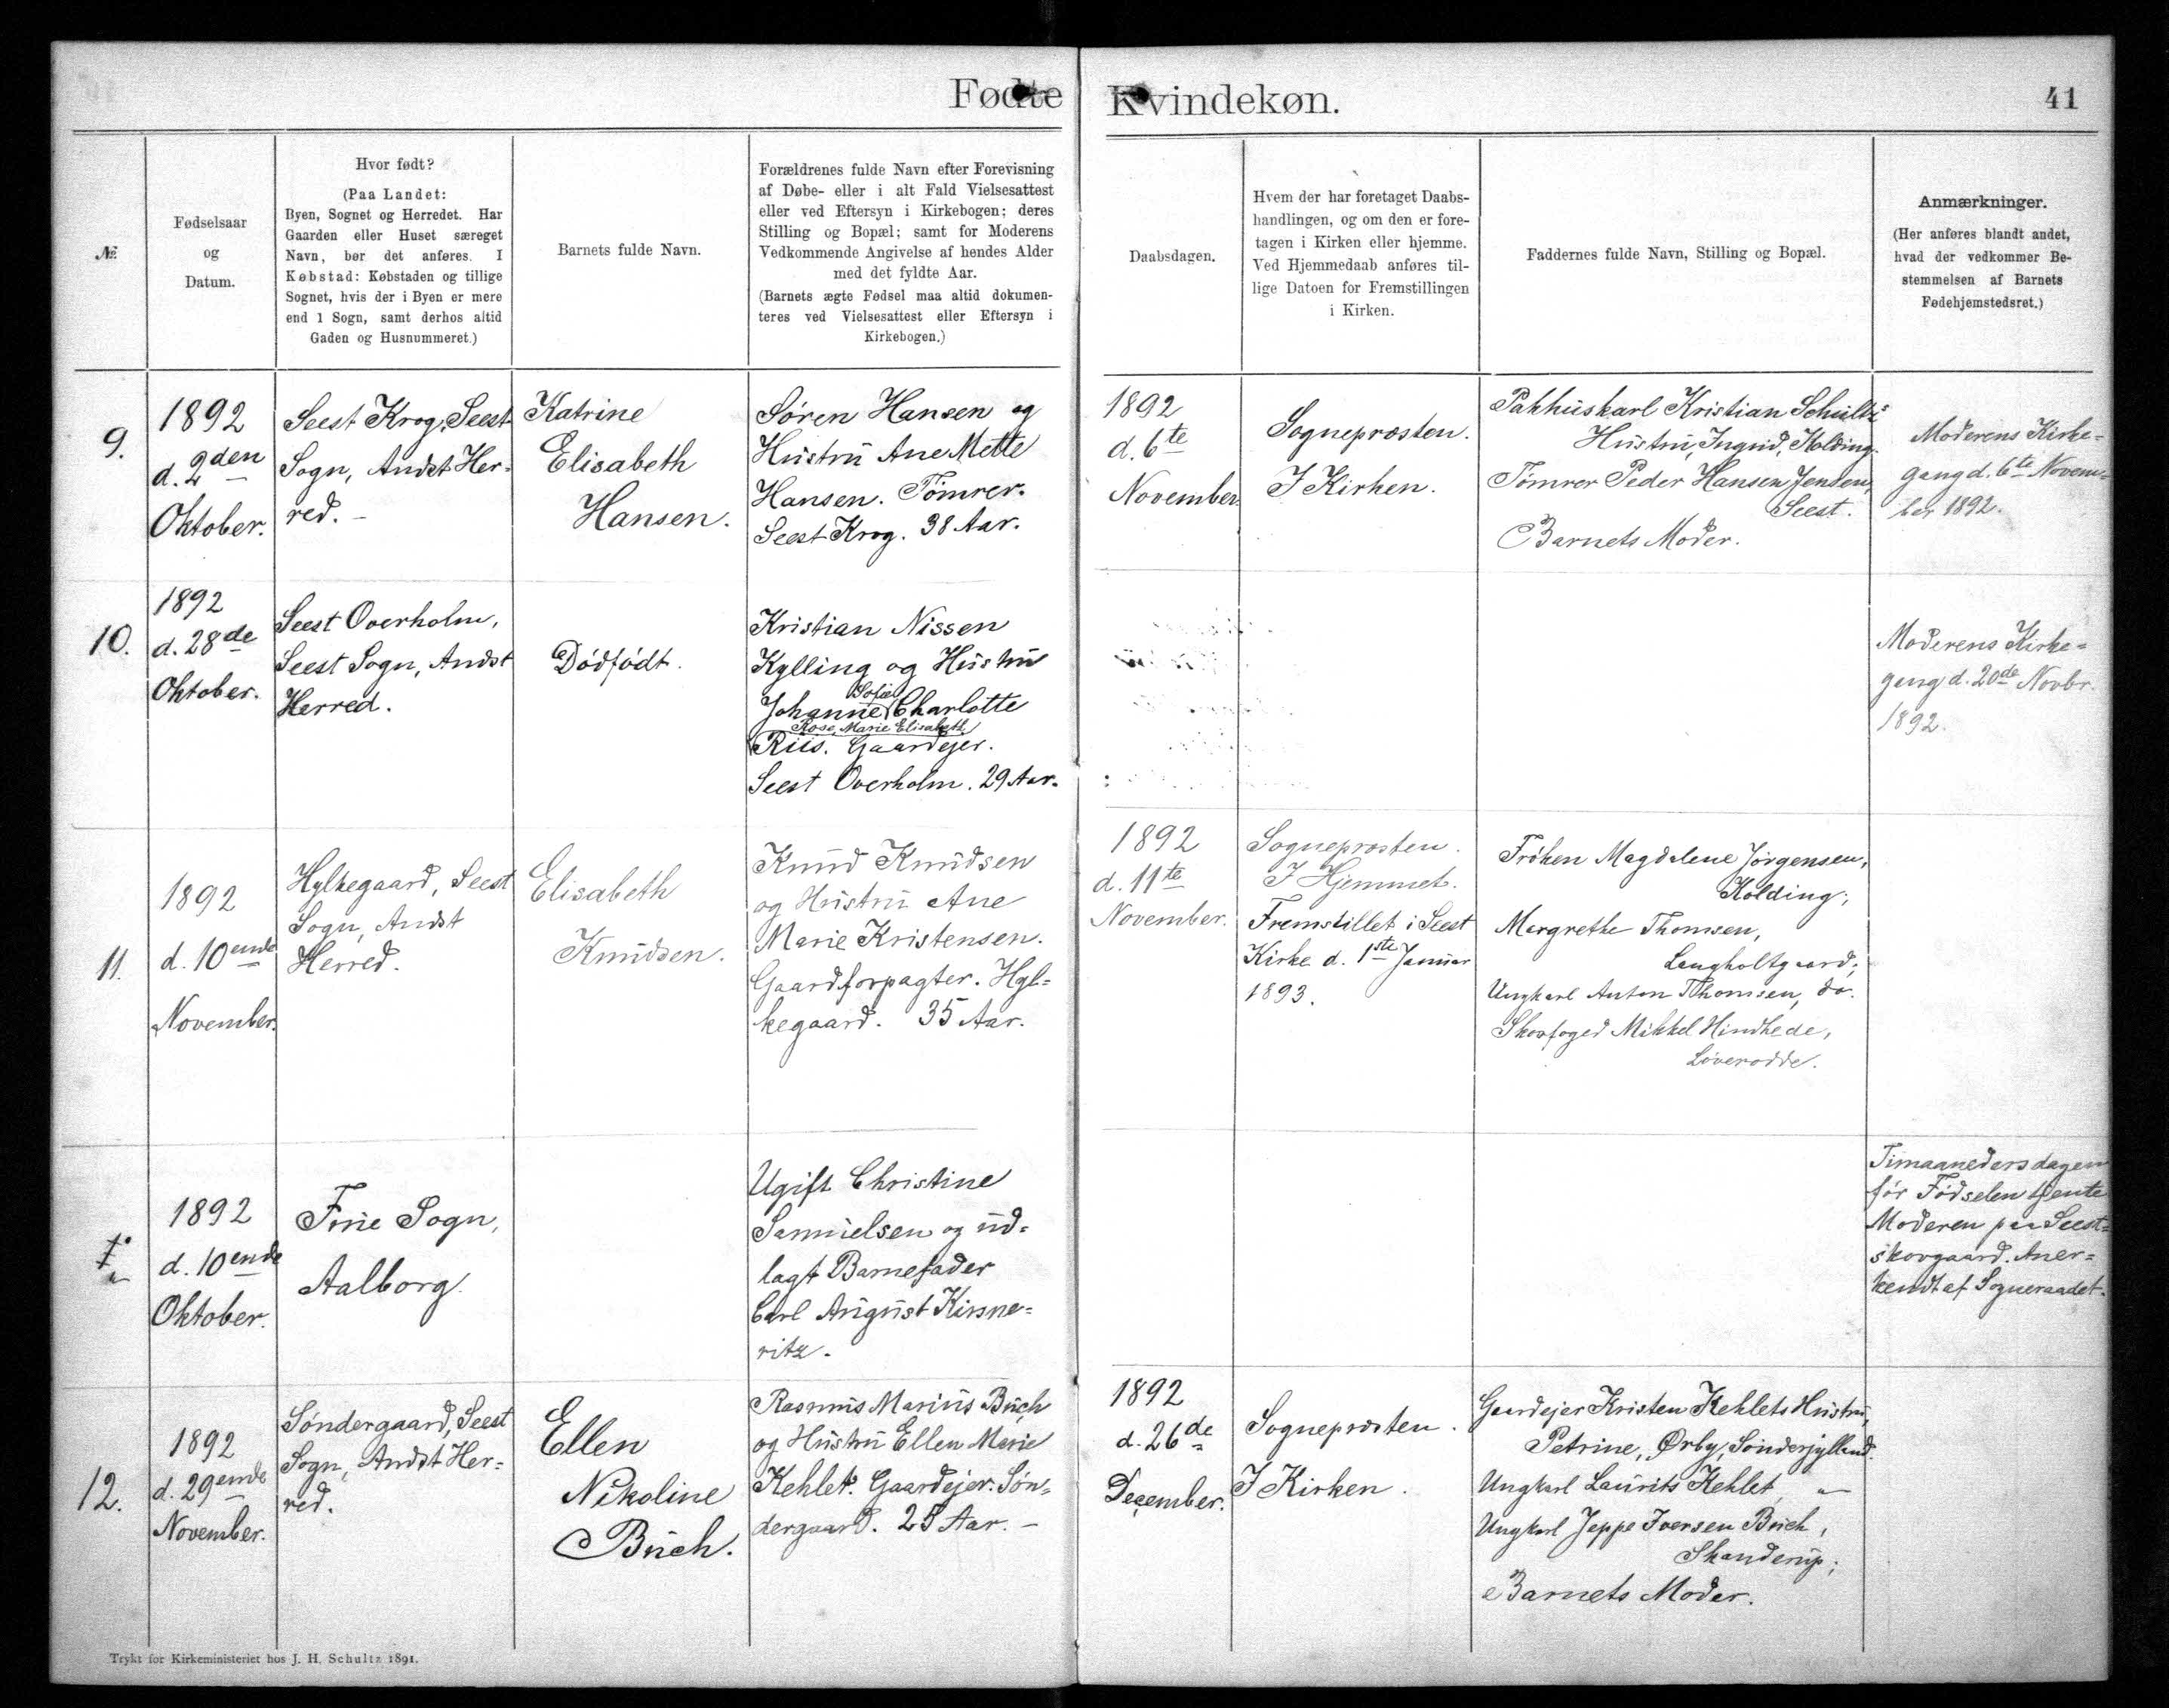 Fødte Kvindekøn.
41
№
Fødselsaar
og
Datum.
Hvor født?
(Paa Landet:
Byen, Sognet og Herredet. Har
Gaarden eller Huset særeget
Navn, bør det anføres. I
Købstad: Købstaden og tillige
Sognet, hvis der i Byen er mere
end 1 Sogn, samt derhos altid
Gaden og Husnummeret.)
Barnets fulde Navn.
Forældrenes fulde Navn efter Forevisning
af Døbe- eller i alt Fald Vielsesattest
eller ved Eftersyn i Kirkebogen; deres
Stilling og Bopæl; samt for Moderens
Vedkommende Angivelse af hendes Alder
med det fyldte Aar.
(Barnets ægte Fødsel maa altid dokumen-
teres ved Vielsesattest eller Eftersyn i
Kirkebogen.)
Daabsdagen.
Hvem der har foretaget Daabs-
handlingen, og om den er fore-
tagen i Kirken eller hjemme.
Ved Hjemmedaab anføres til-
lige Datoen for Fremstillingen
i Kirken.
Faddernes fulde Navn, Stilling og Bopæl.
Anmærkninger.
(Her anføres blandt andet,
hvad der vedkommer Be-
stemmelsen af Barnets
Fødehjemstedsret.)
9.
1892
d. 2den
Oktober.
Seest Krog, Seest
Sogn, Andst Her-
red. -
Katrine
Elisabeth
Hansen.
Søren Hansen og
Hustru Ane Mette
Hansen. Tømrer.
Seest Krog. 38 Aar.
1892
d. 6te
November.
Sognepræsten.
I Kirken.
Pakhuskarl Kristian Schultz'
Hustru, Ingrid, Kolding.
Tømrer Peder Hansen Jensen,
Seest.
Barnets Moder.
Moderens Kirke-
gang d. 6te Novem-
ber 1892.
10.
1892
d. 28de
Oktober.
Seest Overholm,
Seest Sogn, Andst
Herred.
Dødfødt.
Kristian Nissen
Kylling og Hustru
Sofie
Johanne Charlotte
Rose, Marie Elisabeth
Riis. Gaardejer.
Seest Overholm. 29 Aar.
Moderens Kirke-
gang d. 20de Novbr.
1892.
11.
1892
d. 10ende
November.
Hylkegaard, Seest
Sogn, Andst
Herred.
Elisabeth
Knudsen.
Knud Knudsen
og Hustru Ane
Marie Kristensen.
Gaardforpagter. Hyl-
kegaard. 35 Aar.
1892
d. 11te
November.
Sognepræsten.
I Hjemmet.
Fremstillet i Seest
Kirke d. 1ste Januar
1893.
Frøken Magdalene Jørgensen,
Kolding;
Margrethe Thomsen,
Langholtgaard;
Ungkarl Anton Thomsen, do.
Skovfoged Mikkel Hindhede,
Løverodde.
1892
d. 10ende
Oktober.
Frue Sogn,
Aalborg.
Ugift Christine
Samuelsen og ud-
lagt Barnefader
Carl August
ritz.
Timaanedersdagen
før Fødselen tjente
Moderen paa Seest-
skovgaard. Aner-
kendt af Sogneraadet.
12.
1892
d. 29ende
November.
Søndergaard, Seest
Sogn, Andst Her-
red.
Ellen
Nikoline
Buch.
Rasmus Marius Buch
og Hustru Ellen Marie
Kehlet. Gaardejer. Søn-
dergaard. 25 Aar. -
1892
d. 26de
December.
Sognepræsten.
I Kirken.
Gaardejer Kristen Kehlets Hustru,
Petrine, Ørby, Sønderjylland.
Ungkarl Laurits Kehlet, "
Ungkarl Jeppe Iversen Buch,
Skanderup;
Barnets Moder.
Trykt for Kirkeministeriet hos J. H. Schultz 1891.